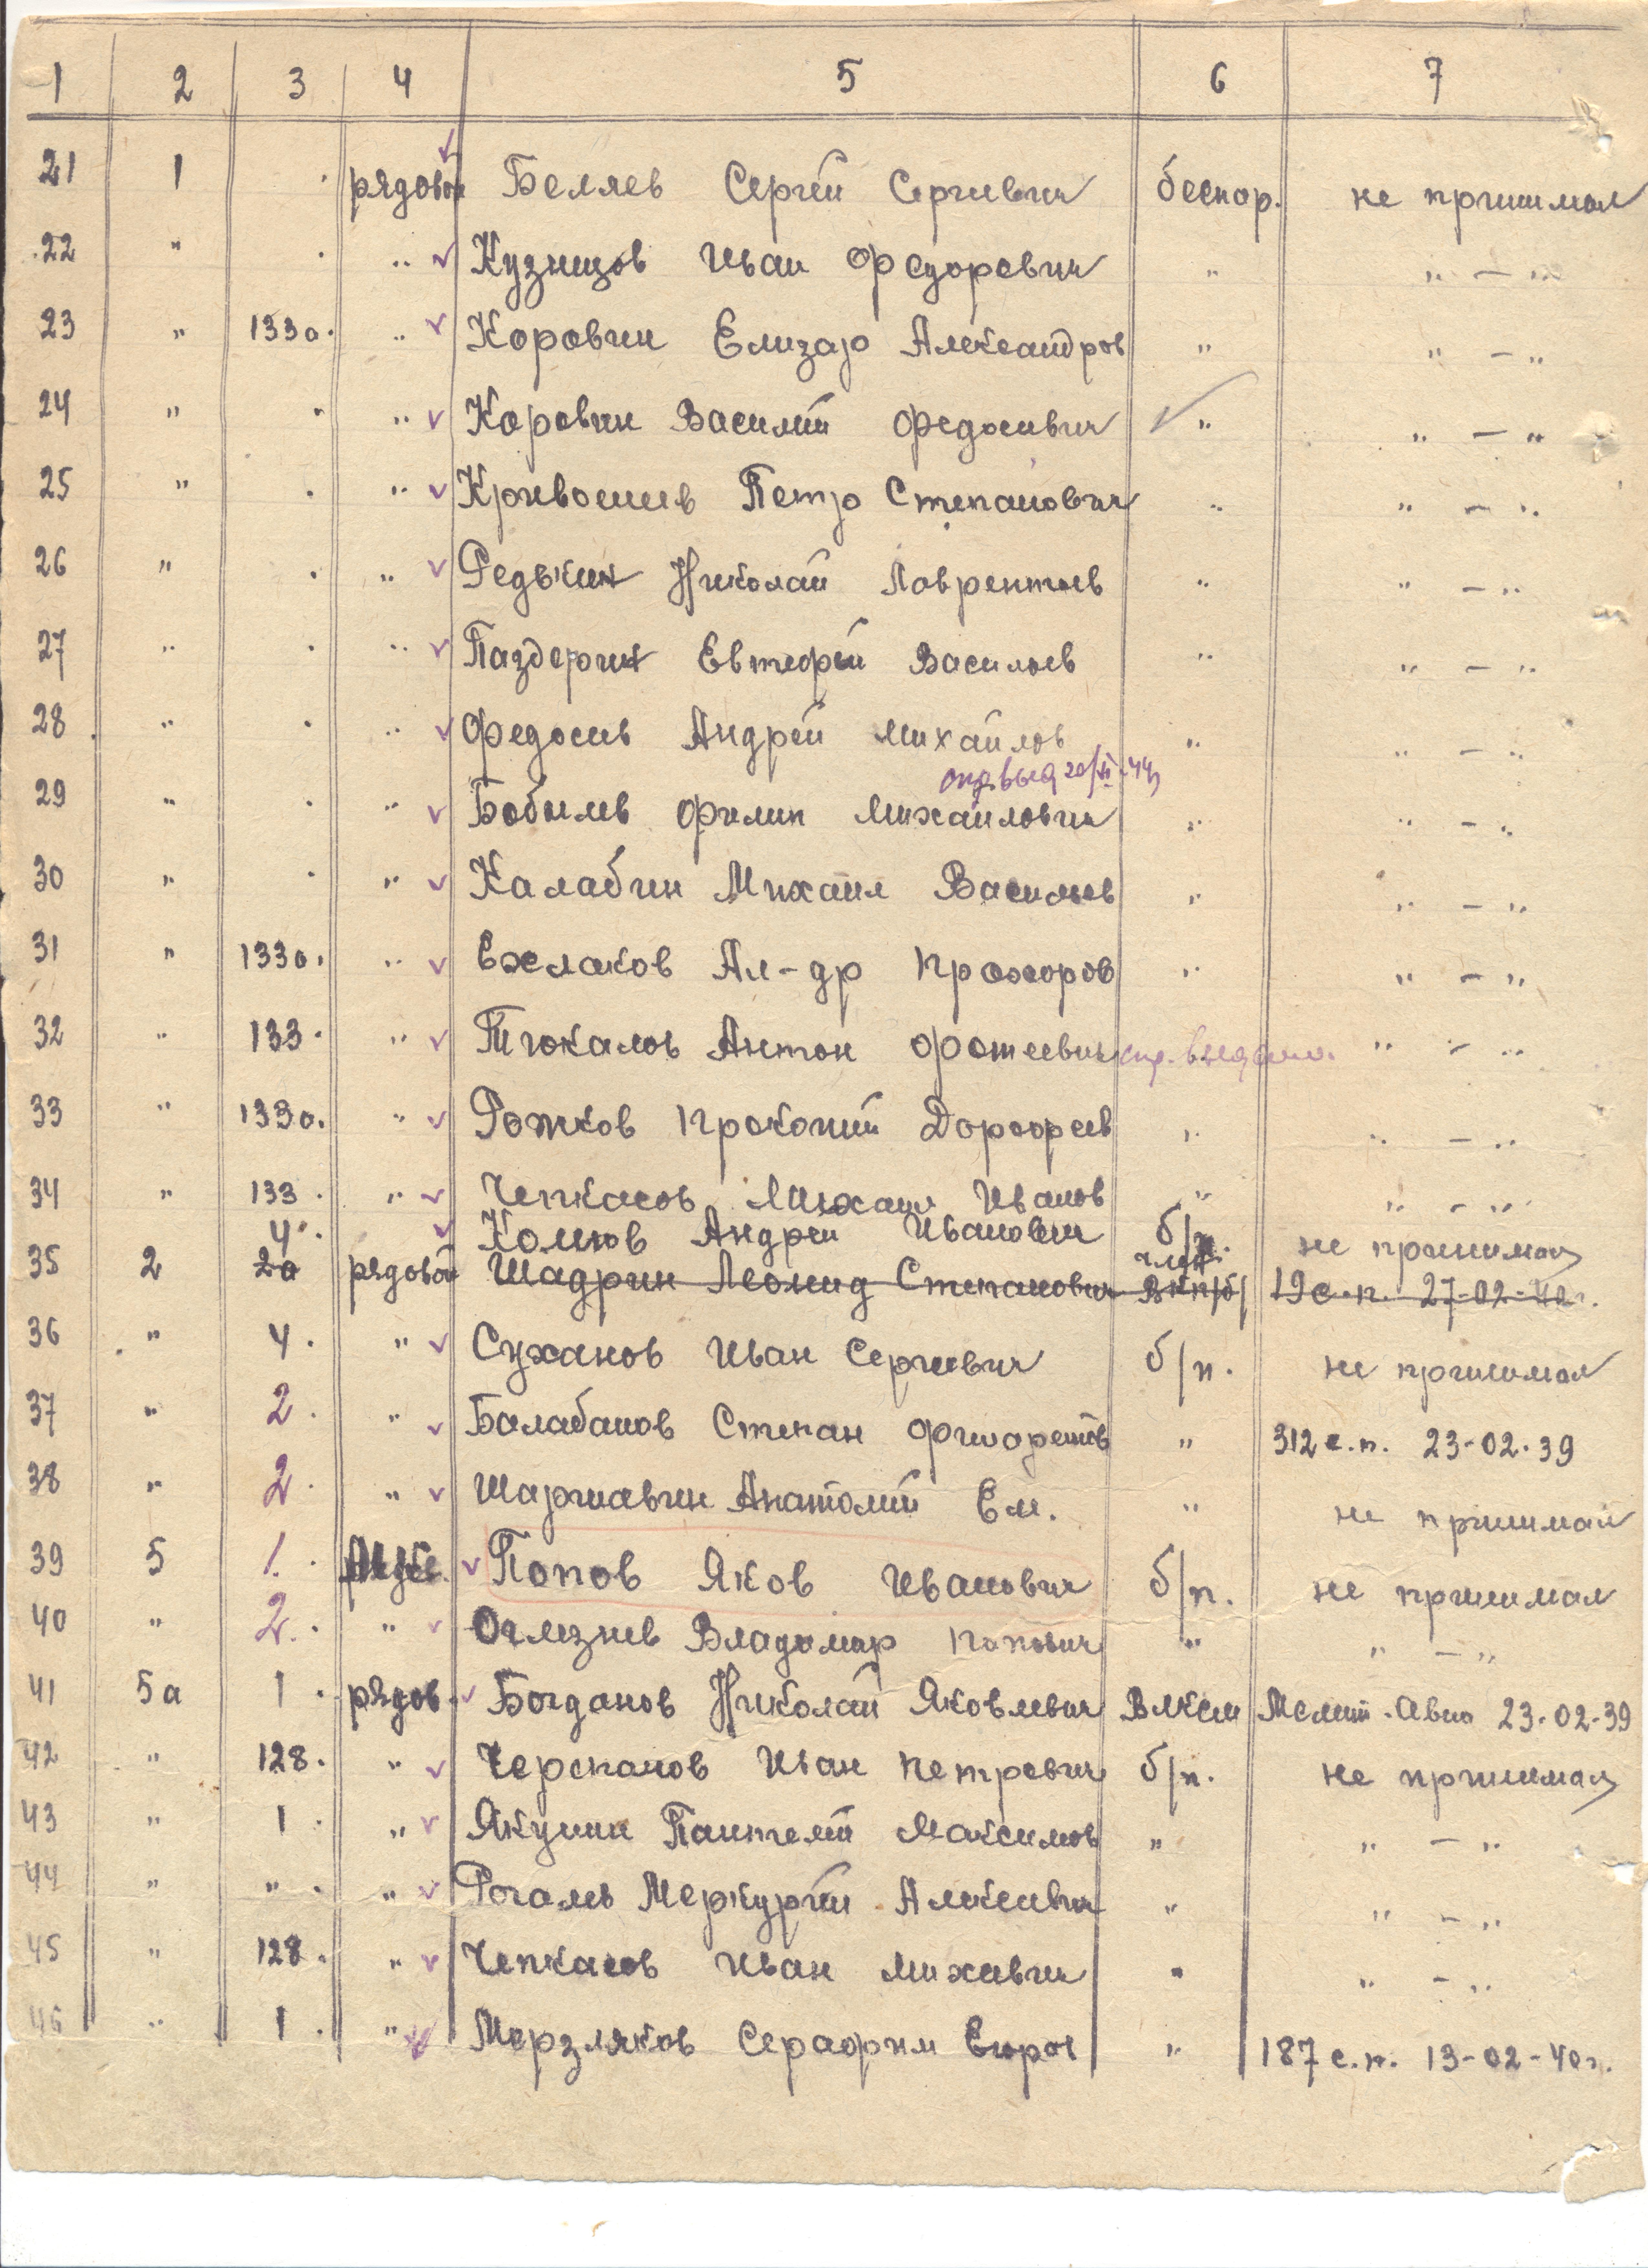 1 2 3 4 5 6 7
21 1 рядовой Беляев Сергей Сергиевич беспар. не принимал
22 " " Кузнецов Иван Федорович " " — "
23 " 1330. " Коровин Елизар Александров " " — "
24 " " Коровин Василий Федосеевич " " — "
25 " " Кривошеев Петр Степанович " " — "
26 " " Редькин Николай Лаврентьев " " — "
27 " " Паздерин Евтефей Васильев " " — "
28 " " Федосеев Андрей Михайлов " " — "
29 " " Бобылев Филип Михайлович " " — "
30 " " Калабин Михаил Васильев " " — "
31 " 1330. " Ежлаков Ал-др Прохоров " " — "
32 " 133. " Тюкалов Антон Фотеевич " — "
33 " 1330. " Рожков Прокопий Дорофеев " " — "
34 " 133. " Чепкасов Михаил Иванов " " — "
4. Андрей Иванович б/п. не принимал
35 2 20 рядовой Шадрин Леонид Степанович член ВКП/б/ 19 с.п. 27-02-40г.
36 " 4. " Суханов Иван Сергиевич б/п. не принимал
37 " 2. " Балабанов Степан Филаретов " 312 с.п. 23-02-39
38 " 2. " Шаршавин Анатолий Ем. " не принимал
39 5 1. Попов Яков Иванович б/п. не принимал
40 " 2. " Оглезнев Владимир " " — "
41 5а 1. рядов. Богданов Николай Яковлевич ВЛКСМ Мелит. Авиа 23-02-39
42 " 128. " Черепанов Иван Петрович б/п. не принимал
43 " 1. " Якунин Пантелей Максимов " " — "
44 " " " Рогалев Меркурий Алексеевич " " — "
45 " 128. " Чепкасов Иван Михеевич " " — "
46 " 1. " Мерзляков Серафим Егоров " 187 с.п. 13-02-40г.